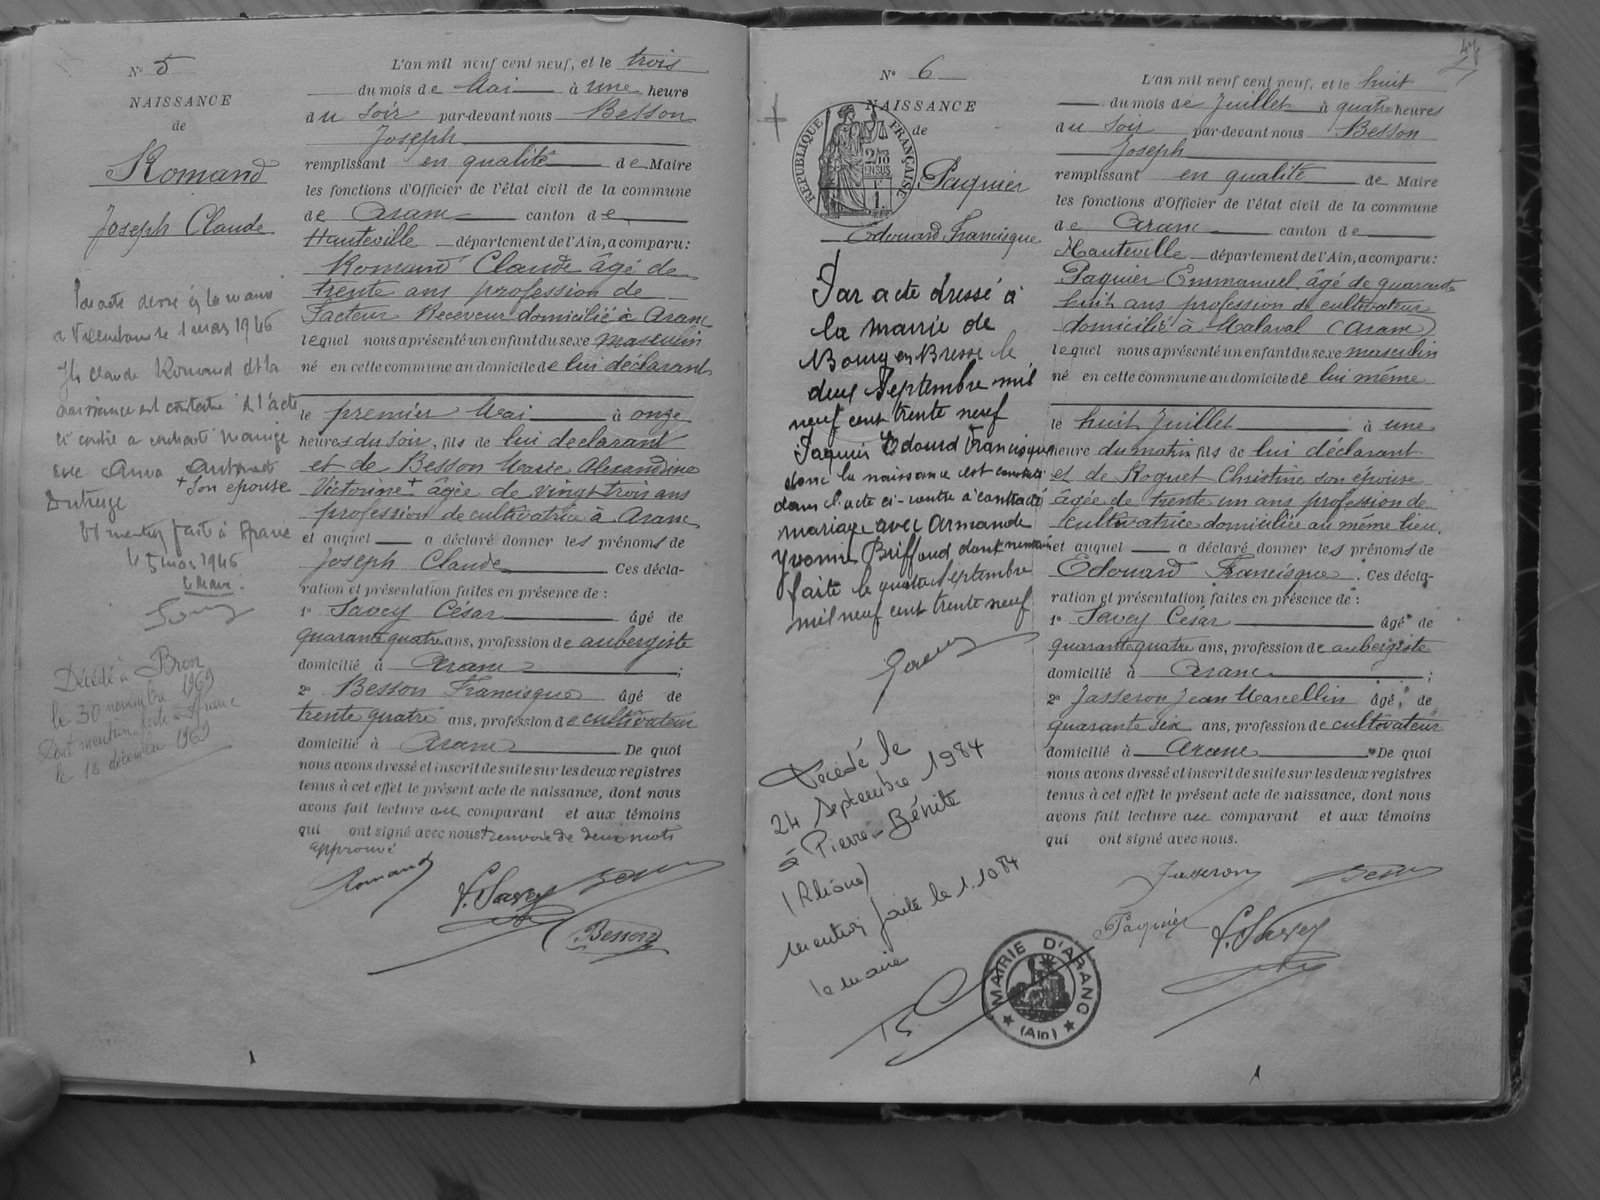 N° 5
NAISSANCE
de
Romand
Joseph Claude
Par acte dressé à la mairie
à Villeurbanne le 1 mars 1946
Claude Romand dt la
naissance est constatée à l'acte
ci contre a contracté mariage
avec Anna Antoinette
+ son épouse
Dutruge
Dt mention faite à Aranc
le 5 mars 1946
Le Maire:
Décédé à Bron
le 30 novembre 1969
Dont mention faite à Aranc
le 18 décembre 1969
L'an mil neuf cent neuf, et le trois
du mois de Mai à une heure
du soir par-devant nous Besson
Joseph
remplissant en qualité de Maire
les fonctions d'Officier de l'état civil de la commune
de Aranc canton de
Hauteville département de l'Ain, a comparu:
Romand Claude âgé de
trente ans profession de
Facteur Receveur domicilié à Aranc
lequel nous a présenté un enfant du sexe masculin
né en cette commune au domicile de lui déclarant
le premier Mai à onze
heures du soir, fils de lui déclarant
et de Besson Marie Alexandrine
Victorine + âgée de vingt trois ans
profession de cultivatrice à Aranc
et auquel a déclaré donner les prénoms de
Joseph Claude Ces décla-
ration et présentation faites en présence de :
1° Savey César âgé de
quarante quatre ans, profession de aubergiste
domicilié à Aranc ;
2° Besson Francisque âgé de
trente quatre ans, profession de cultivateur
domicilié à Aranc De quoi
nous avons dressé et inscrit de suite sur les deux registres
tenus à cet effet le présent acte de naissance, dont nous
avons fait lecture au comparant et aux témoins
qui ont signé avec nous + renvoi de deux mots
approuvé
Romand
C. Savey
Besson
Besson
47
N° 6
NAISSANCE
de
RÉPUBLIQUE FRANÇAISE
Paquier
Edouard Francisque
Par acte dressé à
la mairie de
Bourg en Bresse le
deux Septembre mil
neuf cent trente neuf
Paquier Edouard Francisque
dont la naissance est constatée
dans l'acte ci-contre a contracté
mariage avec Armande
Yvonne Briffaud dont mention
faite le quatre Septembre
mil neuf cent trente neuf
Décédé le
24 septembre 1984
à Pierre-Bénite
(Rhône)
mention faite le 1.10 84
le maire
MAIRIE D'ARANC
(Ain)
L'an mil neuf cent neuf, et le huit
du mois de Juillet à quatre heures
du soir par-devant nous Besson
Joseph
remplissant en qualité de Maire
les fonctions d'Officier de l'état civil de la commune
de Aranc canton de
Hauteville département de l'Ain, a comparu:
Paquier Emmanuel âgé de quarante
huit ans profession de cultivateur
domicilié à Malaval (Aranc)
lequel nous a présenté un enfant du sexe masculin
né en cette commune au domicile de lui même
le huit Juillet à une
heure du matin fils de lui déclarant
et de Roguet Christine son épouse
âgée de trente un ans profession de
cultivatrice domiciliée au même lieu.
et auquel a déclaré donner les prénoms de
Edouard Francisque. Ces décla-
ration et présentation faites en présence de :
1° Savey César âgé de
quarante quatre ans, profession de aubergiste
domicilié à Aranc ;
2° Jasseron Jean Marcellin âgé, de
quarante six ans, profession de cultivateur
domicilié à Aranc De quoi
nous avons dressé et inscrit de suite sur les deux registres
tenus à cet effet le présent acte de naissance, dont nous
avons fait lecture au comparant et aux témoins
qui ont signé avec nous.
Jasseron
Besson
Paquier
C. Savey